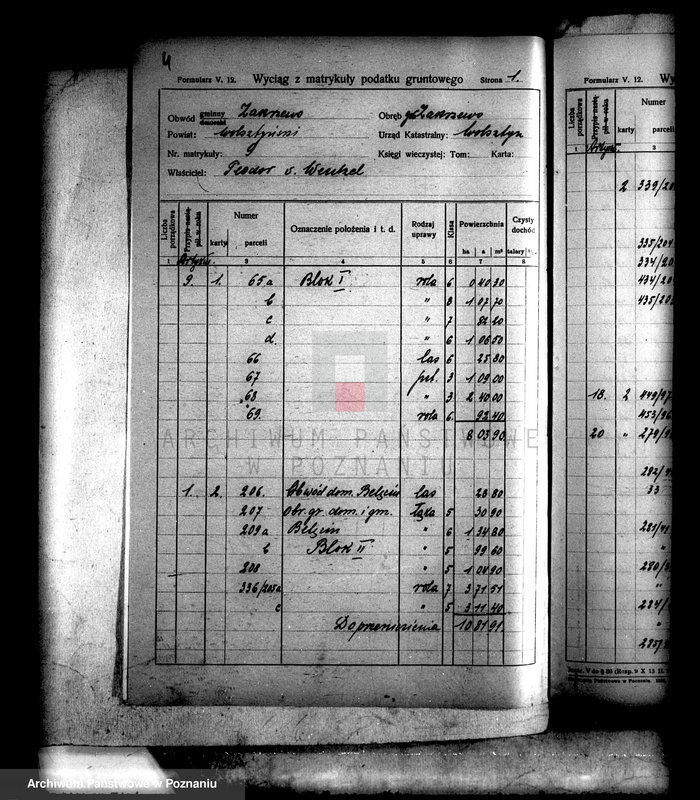 4
Formularz V. 12. Wyciąg z matrykuły podatku gruntowego Strona 1.
Obwód gminny dworski Zakrzewo Obręb Zakrzewo
Powiat: Wolsztyński Urząd Katastralny: Wolsztyn
Nr. matrykuły: 9 Księgi wieczystej: Tom: Karta:
Właściciel: Teodor v. Wentzel
Liczba porządkowa Numer karty parceli Oznaczenie położenia i t. d. Rodzaj uprawy Klasa Powierzchnia ha a m² Czysty dochód talary
1 2 3 4 5 6 7 8
9. 1. 65a Blok I rola 6 0 40 30
b " 8 1 07 70
c " 7 82 20
d. " 6 1 06 50
66 las 6 25 80
67 3 1 09 00
68 " 3 2 40 00
69. rola 6. 92 40
8 03 90
1. 2. 206. Obwód dom. Bełęcin las 28 80
207 Obr. gr. dom. i gm. łąka 5 30 90
209a Bełęcin " 6 1 34 80
b Blok II " 5 99 60
208 " 5 1 04 90
336/205a rola 7 3 71 51
c " 5 3 11 40
Do przeniesienia 10 81 91
Formularz V. 12. Wy
Liczba porządkowa karty Numer parceli
1 3
2 339/20
335/204
334/20
434/20
435/20
18. 2 449/97
453/96
20 " 279/9
282/4
33
281/41
"
280/3
"
284/
"
285/
ARCHIWUM PAŃSTWOWE
W POZNANIU
Archiwum Państwowe w Poznaniu